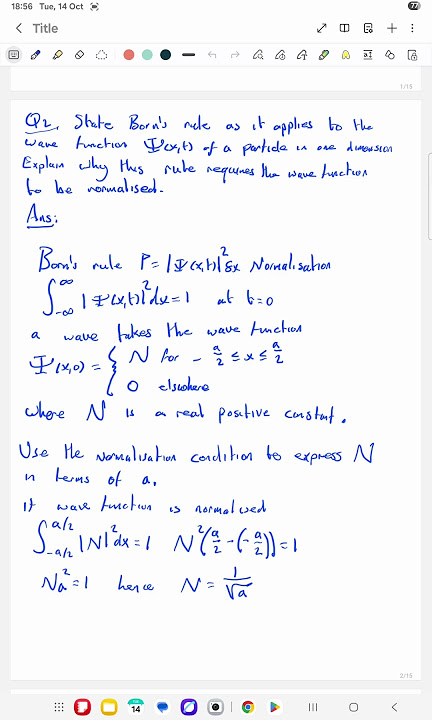 18:56 Tue, 14 Oct
77
Title
1/15
Q2. State Born's rule as it applies to the
wave function Ψ(x,t) of a particle in one dimension
Explain why this rule requires the wave function
to be normalised.
Ans:
Born's rule P = |Ψ(x,t)|² δx Normalisation
∫_{-∞}^{∞} |Ψ(x,t)|² dx = 1 at t=0
a wave takes the wave function
Ψ(x,0) = { N for - a/2 ≤ x ≤ a/2
0 elsewhere
where N is a real positive constant.
Use the Normalisation condition to express N
in terms of a.
If wave function is normalised
∫_{-a/2}^{a/2} |N|² dx = 1 N² (a/2 - (-a/2)) = 1
N²a = 1 hence N = 1/√a
2/15
14